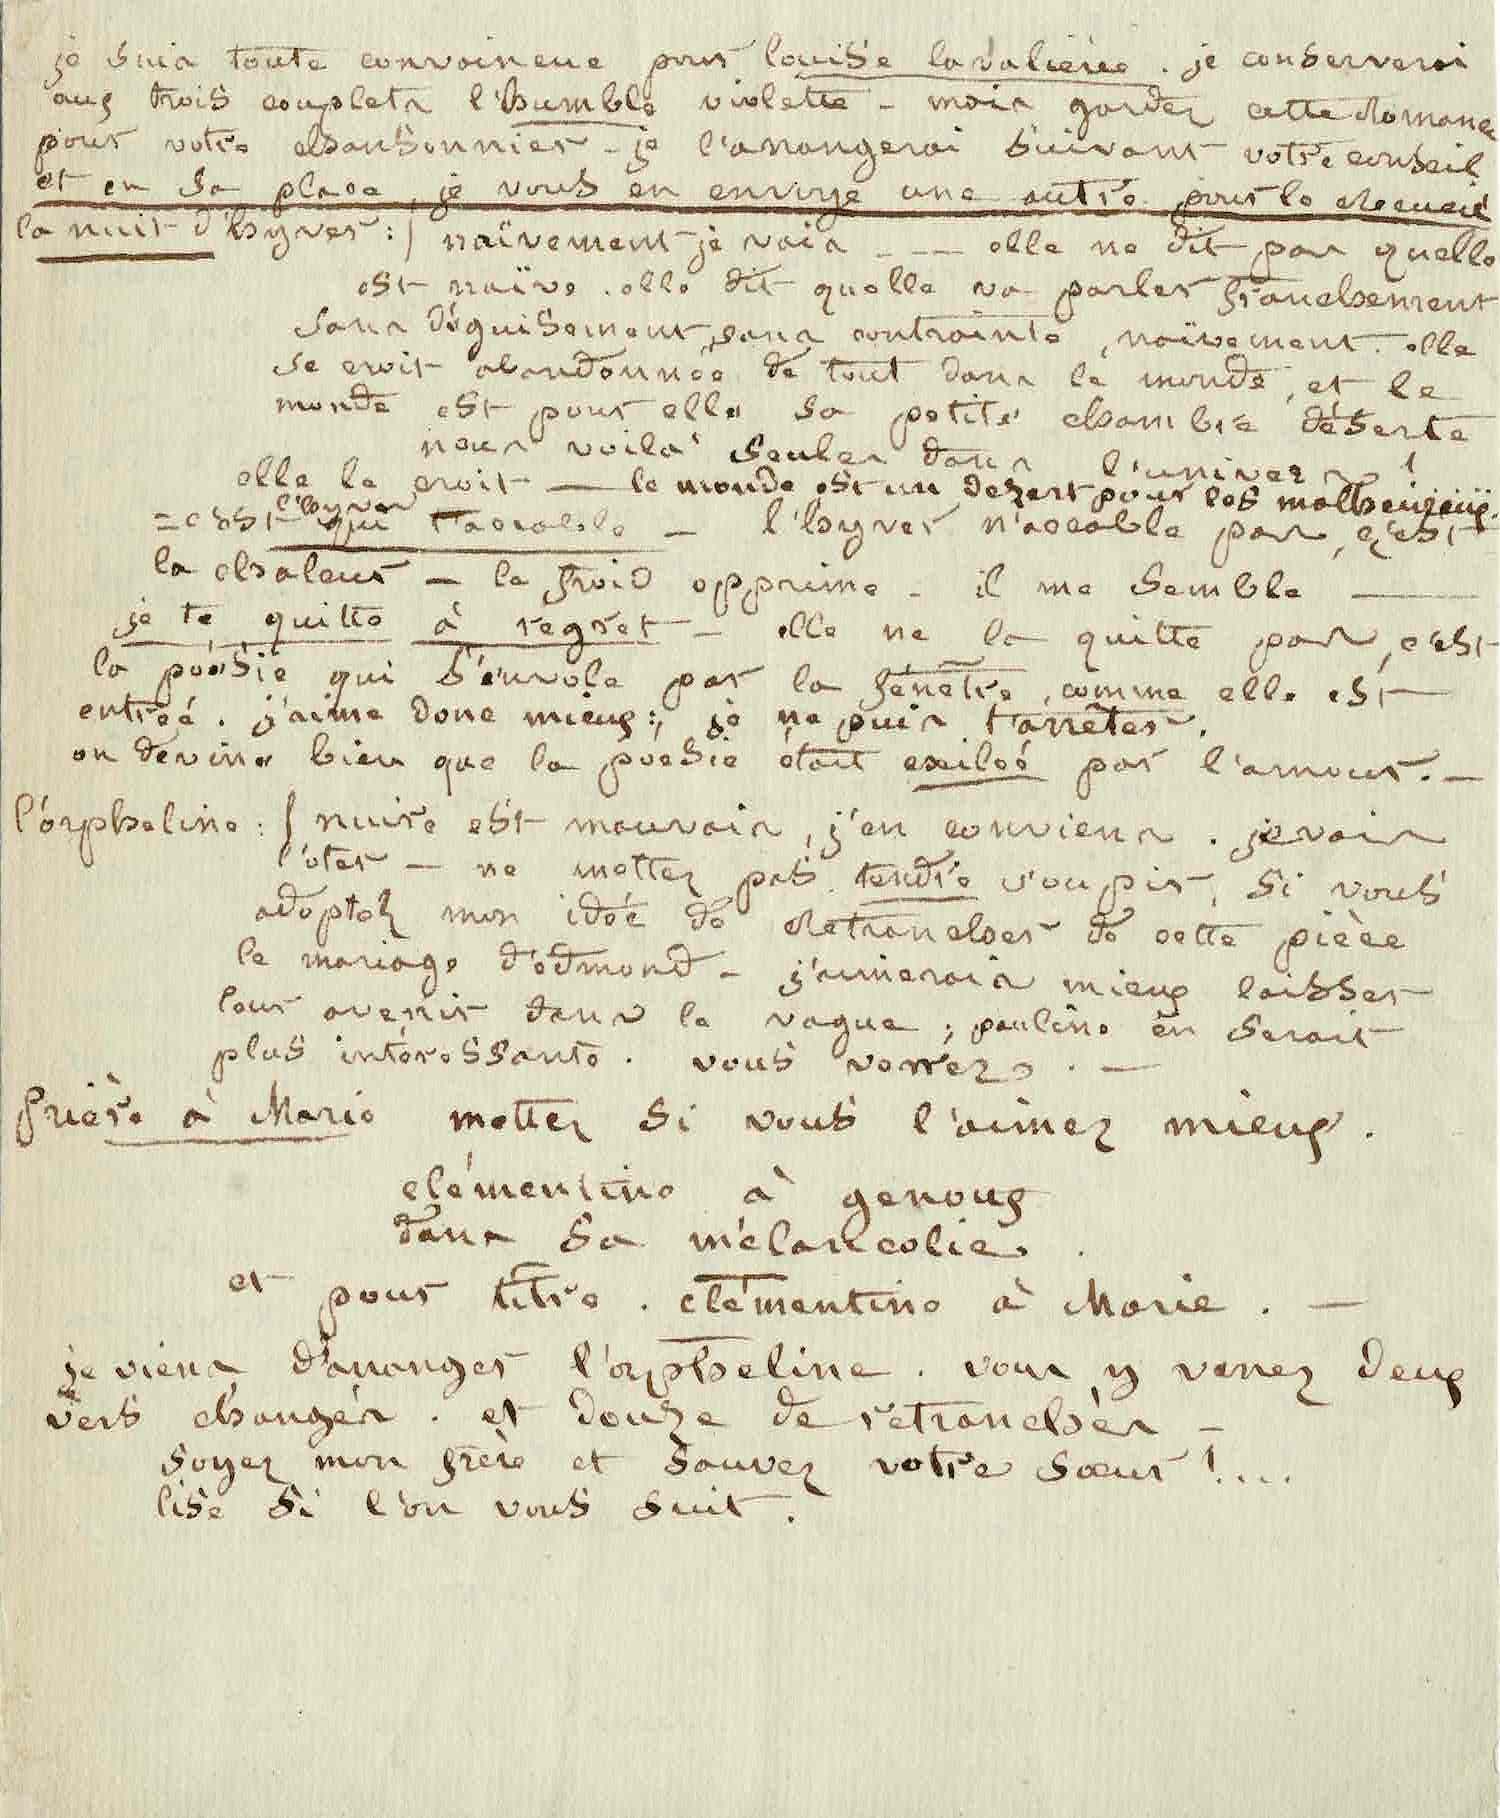 je suis toute convaincue pour louise lavalière. je conserverai
aux trois couplets l'humble violette – mais gardez cette Romance
pour votre chansonnier – je l'arrangerai suivant votre conseil
et en sa place, je vous en envoye une autre pour le Recueil
la nuit d'hyver :/ naïvement je vais - — — elle ne dit pas quelle
est naïve. elle dit quelle va parler franchement
sans déguisement, sans contrainte, naïvement. elle
se croit abandonnée de tout dans le monde, et le
monde est pour elle sa petite chambre déserte
nous voilà seules dans l'univers !
elle le croit — le monde est un dezert pour les malheureux.
= c'est l'hyver qui t'accable – l'hyver n'accable pas, c'est
la chaleur – le froid opprime – il me semble ——
je te quitte à regret – elle ne la quitte pas, c'est
la poésie qui s'envole par la fénêtre, comme elle est
entreé. j'aime donc mieux :, je ne puis t'arrêter.
on devine bien que la poësie était exileé par l'amour. –
l'orpheline : / nuire est mauvais, j'en conviens. je vais
l'oter – ne mettez pas tendre soupir, si vous
adoptez mon idée de Retrancher de cette pièce
le mariage d'édmond – j'aimerais mieux laisser
leur avenir dans le vague ; pauline en serait
plus intéressante. vous verrez. —
Prière à Marie mettez si vous l'aimez mieux.
clémentine à genoux
dans sa mélancolie.
et pour titre. clémentine à Marie. —
je viens d'arranger l'orpheline. vous y verrez deux
vers changés. et douze de retranchés –
soyez mon frère et sauvez votre sœur !....
lise si l'on vous suit.